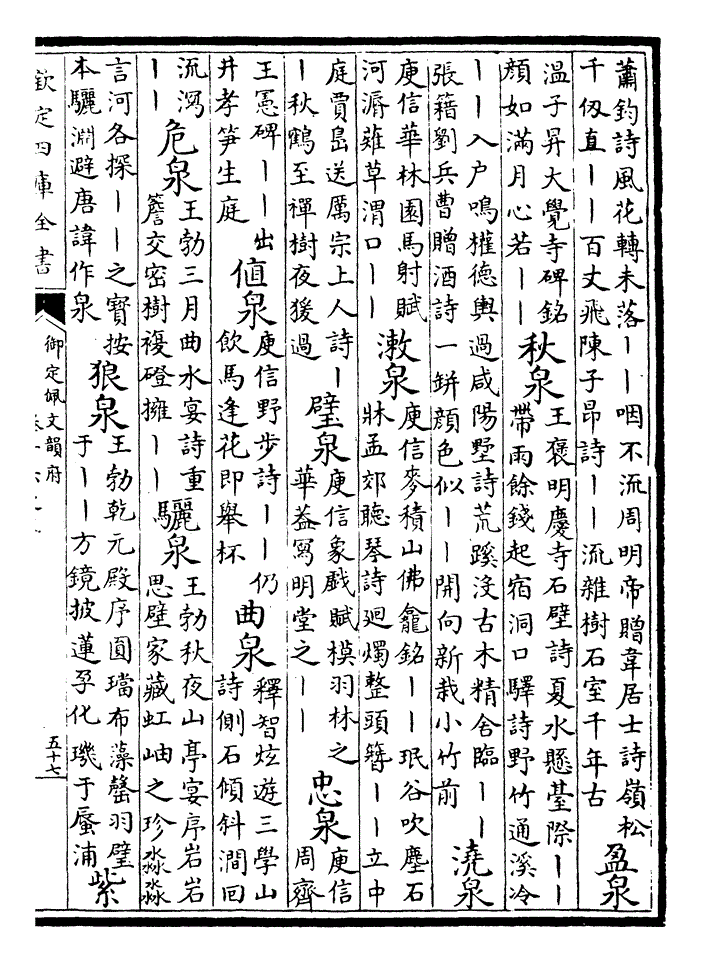 蕭鈞詩風花轉未落丨丨咽不流周明帝贈韋居士詩嶺松
千仭直丨丨百丈飛陳子昂詩丨丨流雜樹石室千年古
盈泉
溫子昇大覺寺碑銘
顔如滿月心若丨丨
秋泉
王褒明慶寺石壁詩夏水懸臺際丨丨
帶雨餘錢起宿洞口驛詩野竹通溪冷
丨丨入户鳴權德輿過咸陽墅詩荒蹊没古木精舍臨丨丨
張籍劉兵曹贈酒詩一缾顔色似丨丨開向新栽小竹前
澆泉
庾信華林園馬射賦
河湑薙草渭口丨丨
漱泉
庾信麥積山佛龕銘丨丨珉谷吹塵石
牀孟郊聽琴詩廻燭整頭簪丨丨立中
庭賈島送厲宗上人詩丨
丨秋鶴至禪樹夜猨過
璧泉
庾信象戱賦模羽林之
華葢寫明堂之丨丨
忠泉
庾信
周齊
王憲碑丨丨出
井孝笋生庭
値泉
庾信野步詩丨丨仍
飲馬逢花即舉杯
曲泉
釋智炫遊三學山
詩側石傾斜澗囘
流瀉
丨丨
危泉
王勃三月曲水宴詩重
簷交密樹複磴擁丨丨
驪泉
王勃秋夜山亭宴序岩岩
思壁家藏虹岫之珍淼淼
言河各探丨丨之寳按
本驪淵避唐諱作泉
狼泉
王勃乾元殿序圓璫布藻罄羽璧
于丨丨方鏡披蓮孕化璣于蜃浦
紫
欽定四庫全書
御定佩文韻府
五十七